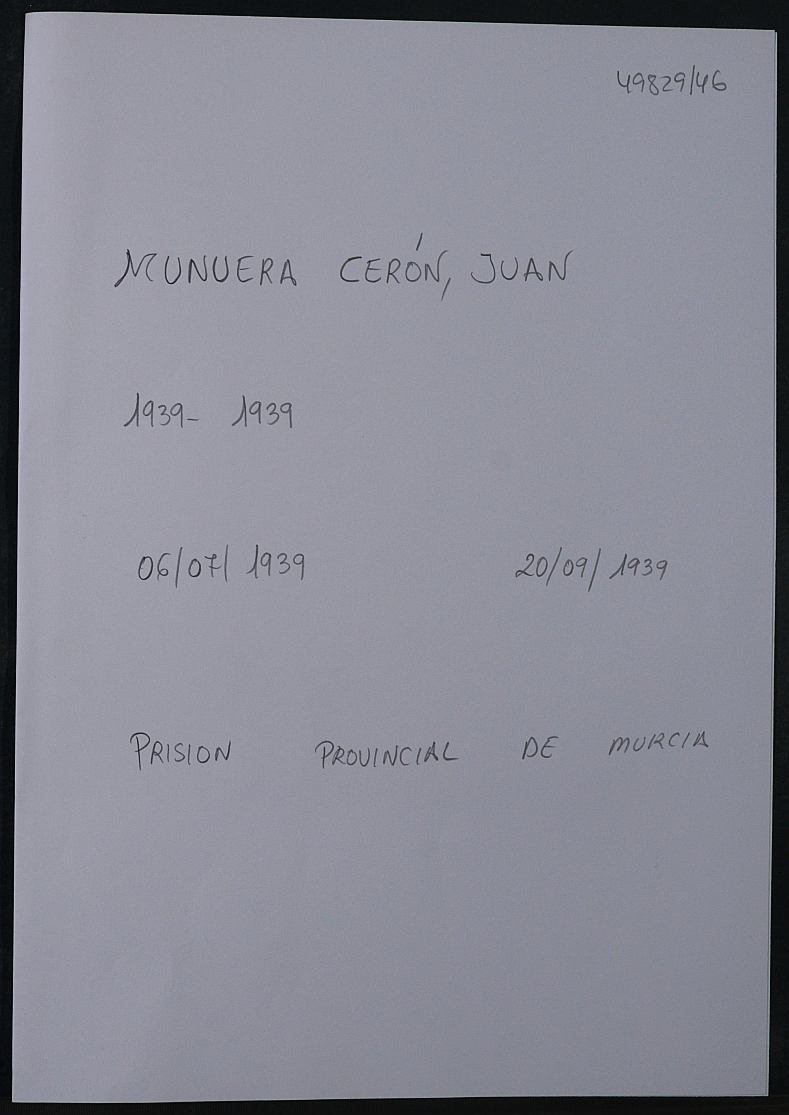 49829/46
MUNUERA CERÓN, JUAN
1939- 1939
06/07/ 1939 20/09/ 1939
PRISION PROVINCIAL DE MURCIA